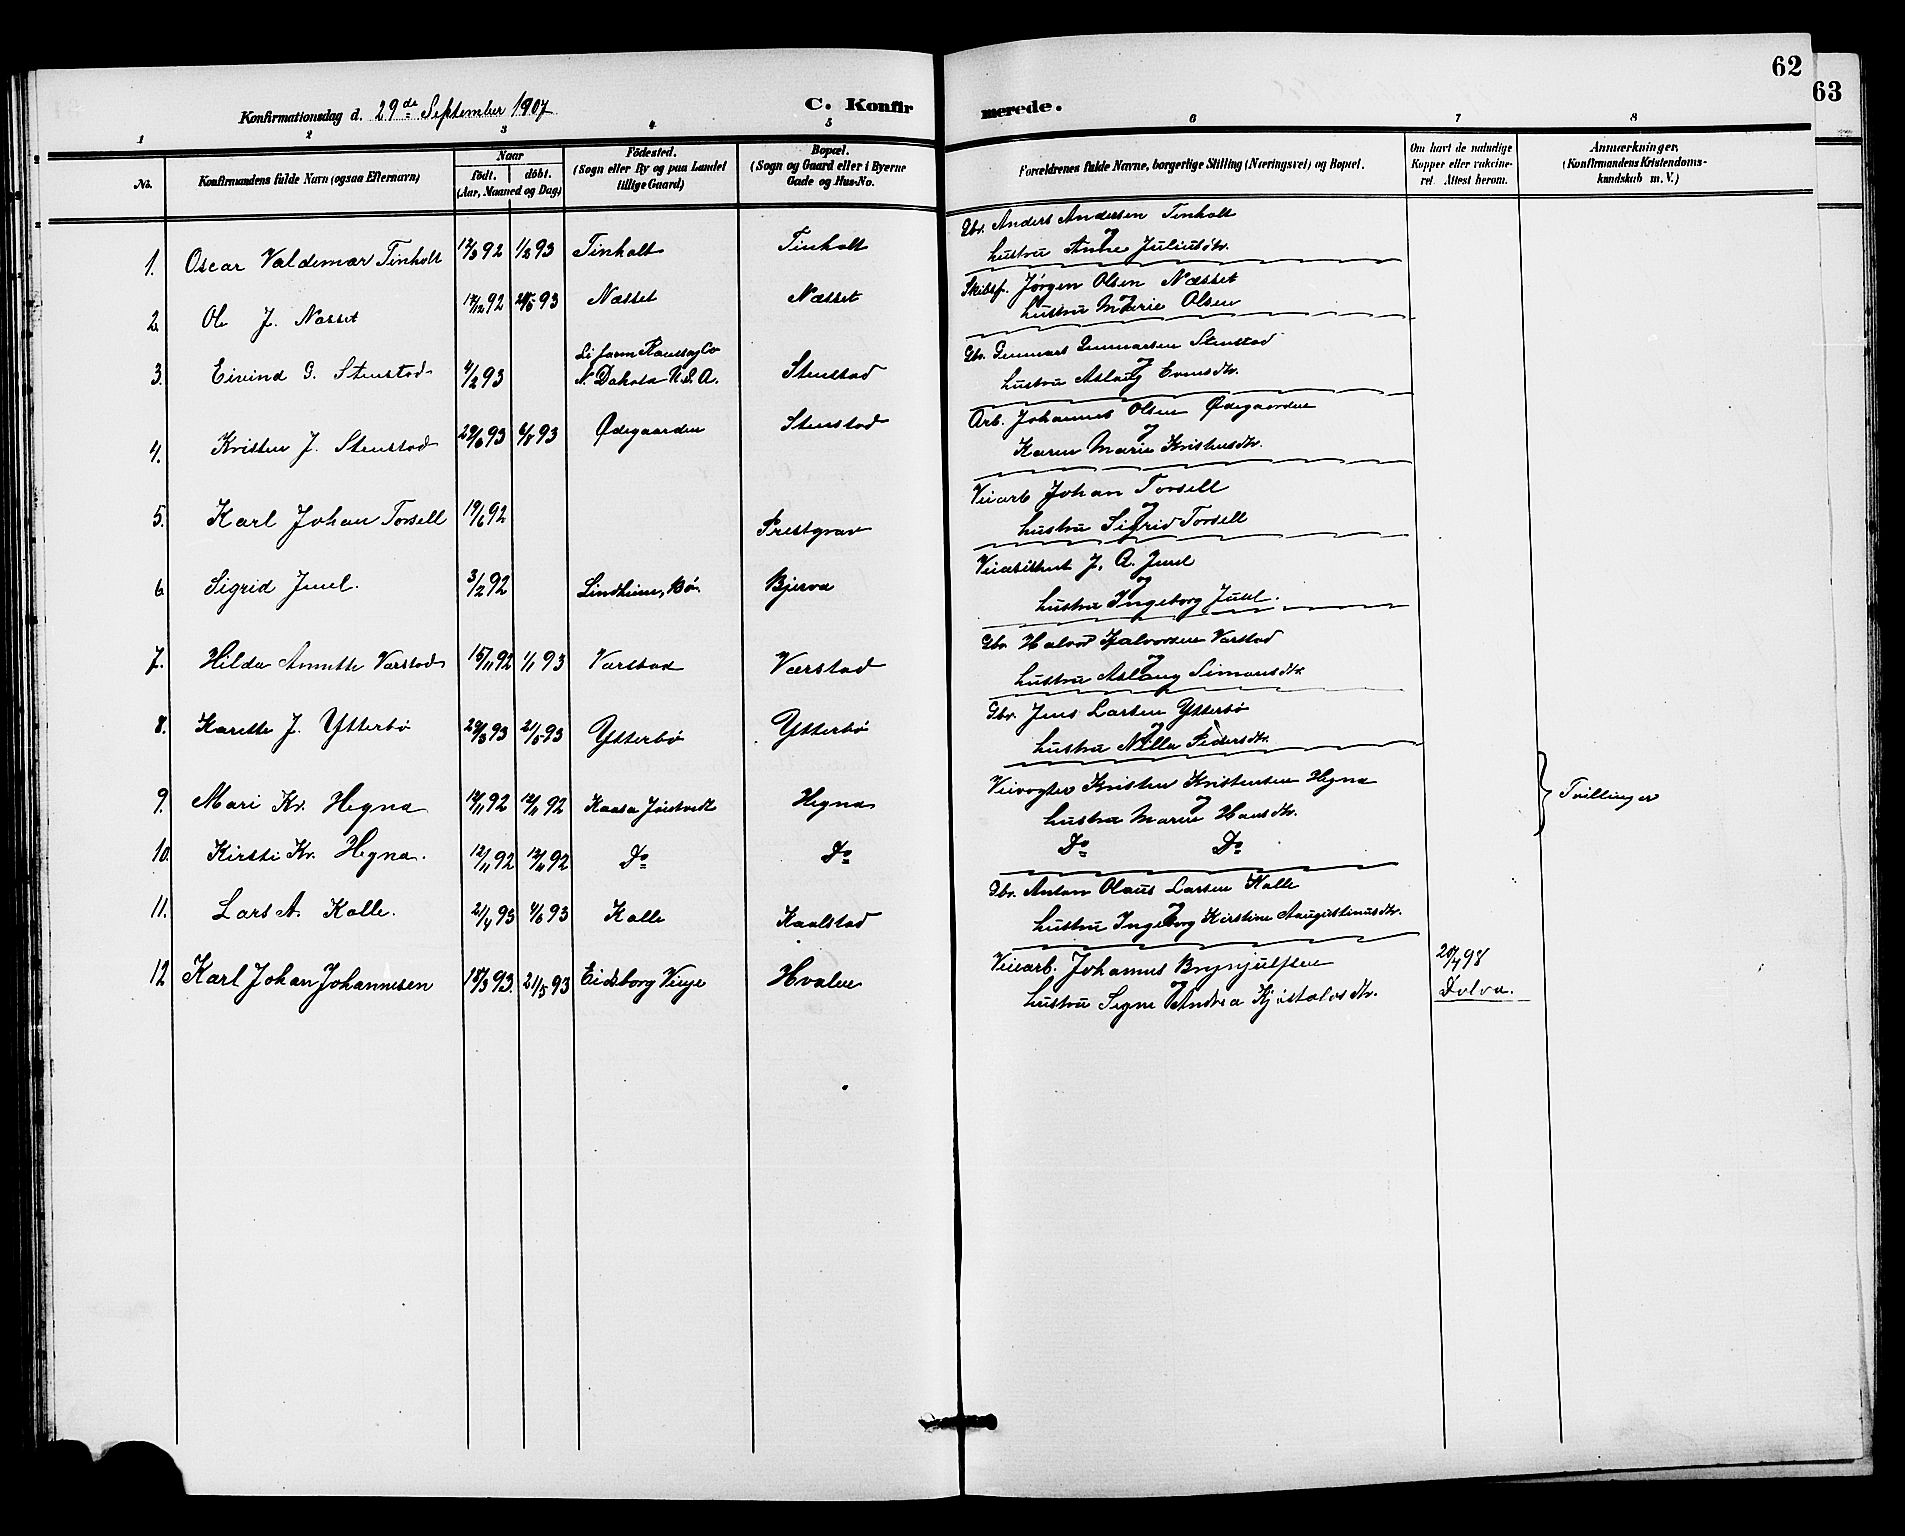 62
63
Konfirmationsdag d. 29de September 1907
C. Konfir
merede.
1 2 3 4 5 6 7 8
No.
Konfirmandens fulde Navn (ogsaa Efternavn)
Naar
født. døbt.
(Aar, Maaned og Dag)
Fødested.
(Sogn eller By og paa Landet
tillige Gaard)
Bopæl.
(Sogn og Gaard eller i Byerne
Gade og Hus-No.
Forældrenes fulde Navne, borgerlige Stilling (Næringsvei) og Bopæl.
Om havt de naturlige
Kopper eller vakcine-
ret. Attest herom.
Anmærkninger,
(Konfirmandens Kristendoms-
kundskab m. V.)
1. Oscar Valdemar Tinholt 92 93 Tinholt Tinholt Gbr. Anders Andersen Tinholt
og
hustru Anne Juliusdtr.
2. Ole J. Næsset 92 93 Næsset Næsset Skibsf. Jørgen Olsen Næsset
og
hustru Marie Olsen
3. Eivind G. Stenstad 4/2 93 Co
N. Dakota U.S.A. Stenstad Gbr. Gunnars Gunnarsen Stenstad
og
hustru Aslaug Evensdtr.
4. Kristen J. Stenstad 29/6 93 93 Ødegaarden Stenstad Arb. Johannes Olsen Ødegaarden
og
Karen Marie Kristensdtr.
5. Karl Johan Torsell 19/6 92 Prestgrav Veiarb. Johan Torsell
og
hustru Sigrid Torsell
6. Sigrid Juul. 3/2 92 Lindheim, Bø. Bjerva J. A. Juul
og
hustru Ingeborg Juul.
7. Hilda Annette Værstad 15/11 92 1/1 93 Værstad Værstad Gbr. Halvor Halvorsen Værstad
og
hustru Aslaug Simonsdtr.
8. Karette J. Ytterbø 29/3 93 21/5 93 Ytterbø Ytterbø Gbr. Jens Larsen Ytterbø
og
hustru Nilla Pedersdtr.
9. Mari Kr. Hegna 12/11 92 92 Kaasa Hegna Veivogter Kristen Kristensen Hegna
og
hustru Maren Hansdtr.
Tvillinger
10. Kirsti Kr. Hegna. 12/11 92 92 Do Do Do Do
11. Lars A. Kolle. 21/4 93 4/6 93 Kolle Kaalstad Gbr. Anton Olaus Larsen Kolle
og
hustru Ingeborg Kirstine Augustinusdtr.
12 Karl Johan Johannesen 18/3 93. 21/5 93 Eidsborg Vinje Hvalen Veiarb. Johannes Brynjulfsen
og
hustru Signe Andrea Kjøstolvsdtr.
20/4 98
Dolva.